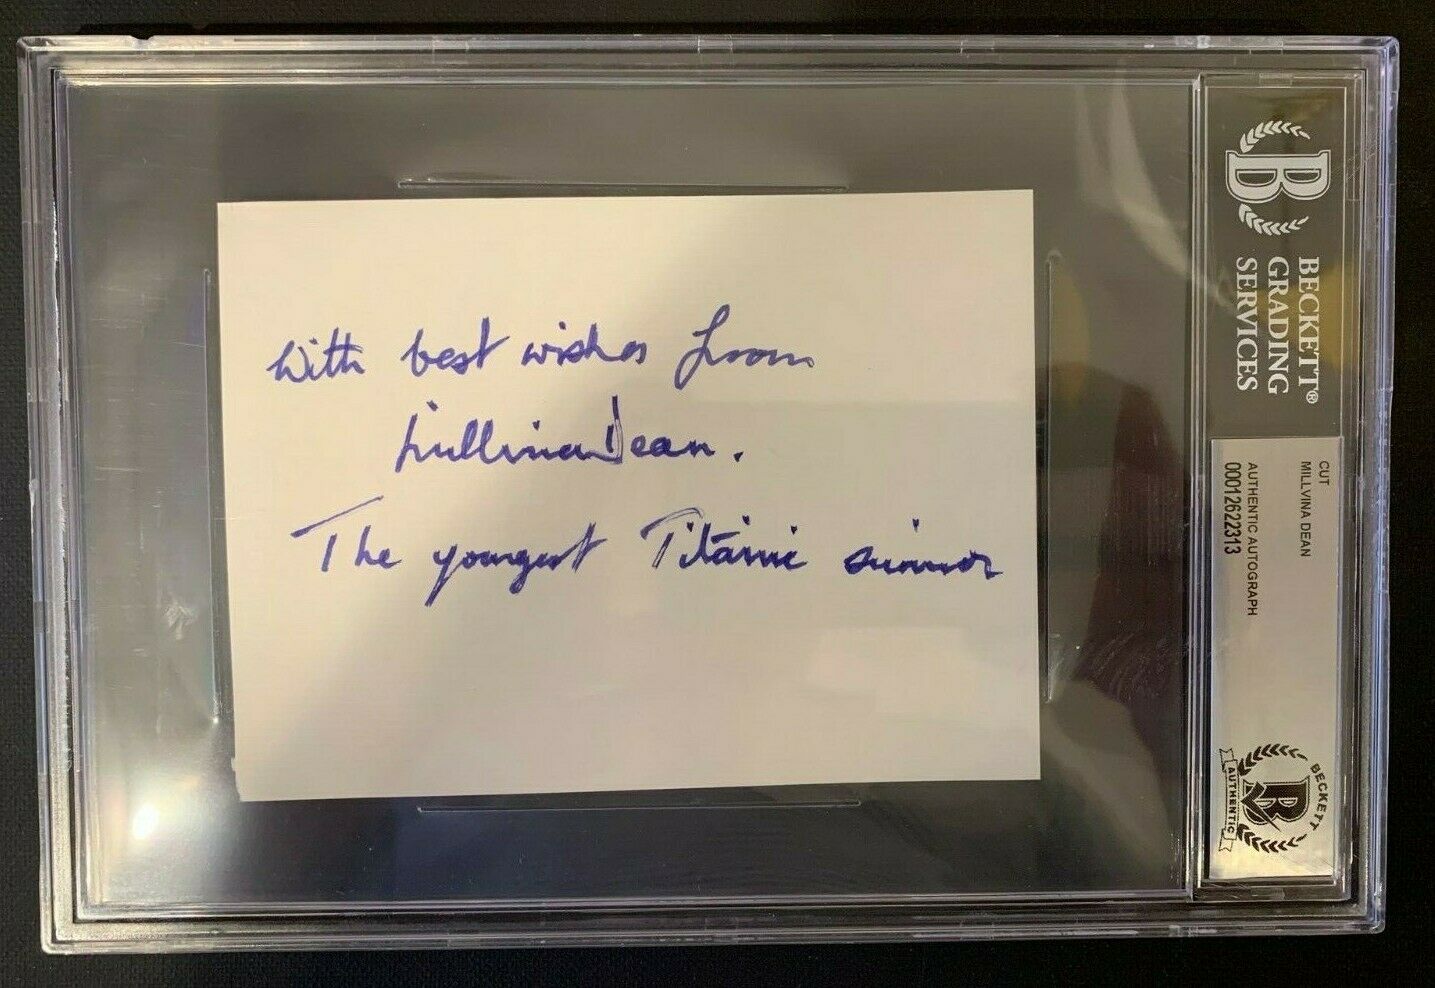 With best wishes from
Millvina Dean.
The youngest Titanic survivor
BECKETT®
GRADING
SERVICES
CUT
MILLVINA DEAN
AUTHENTIC AUTOGRAPH
00012622313
BECKETT
AUTHENTIC
B
B